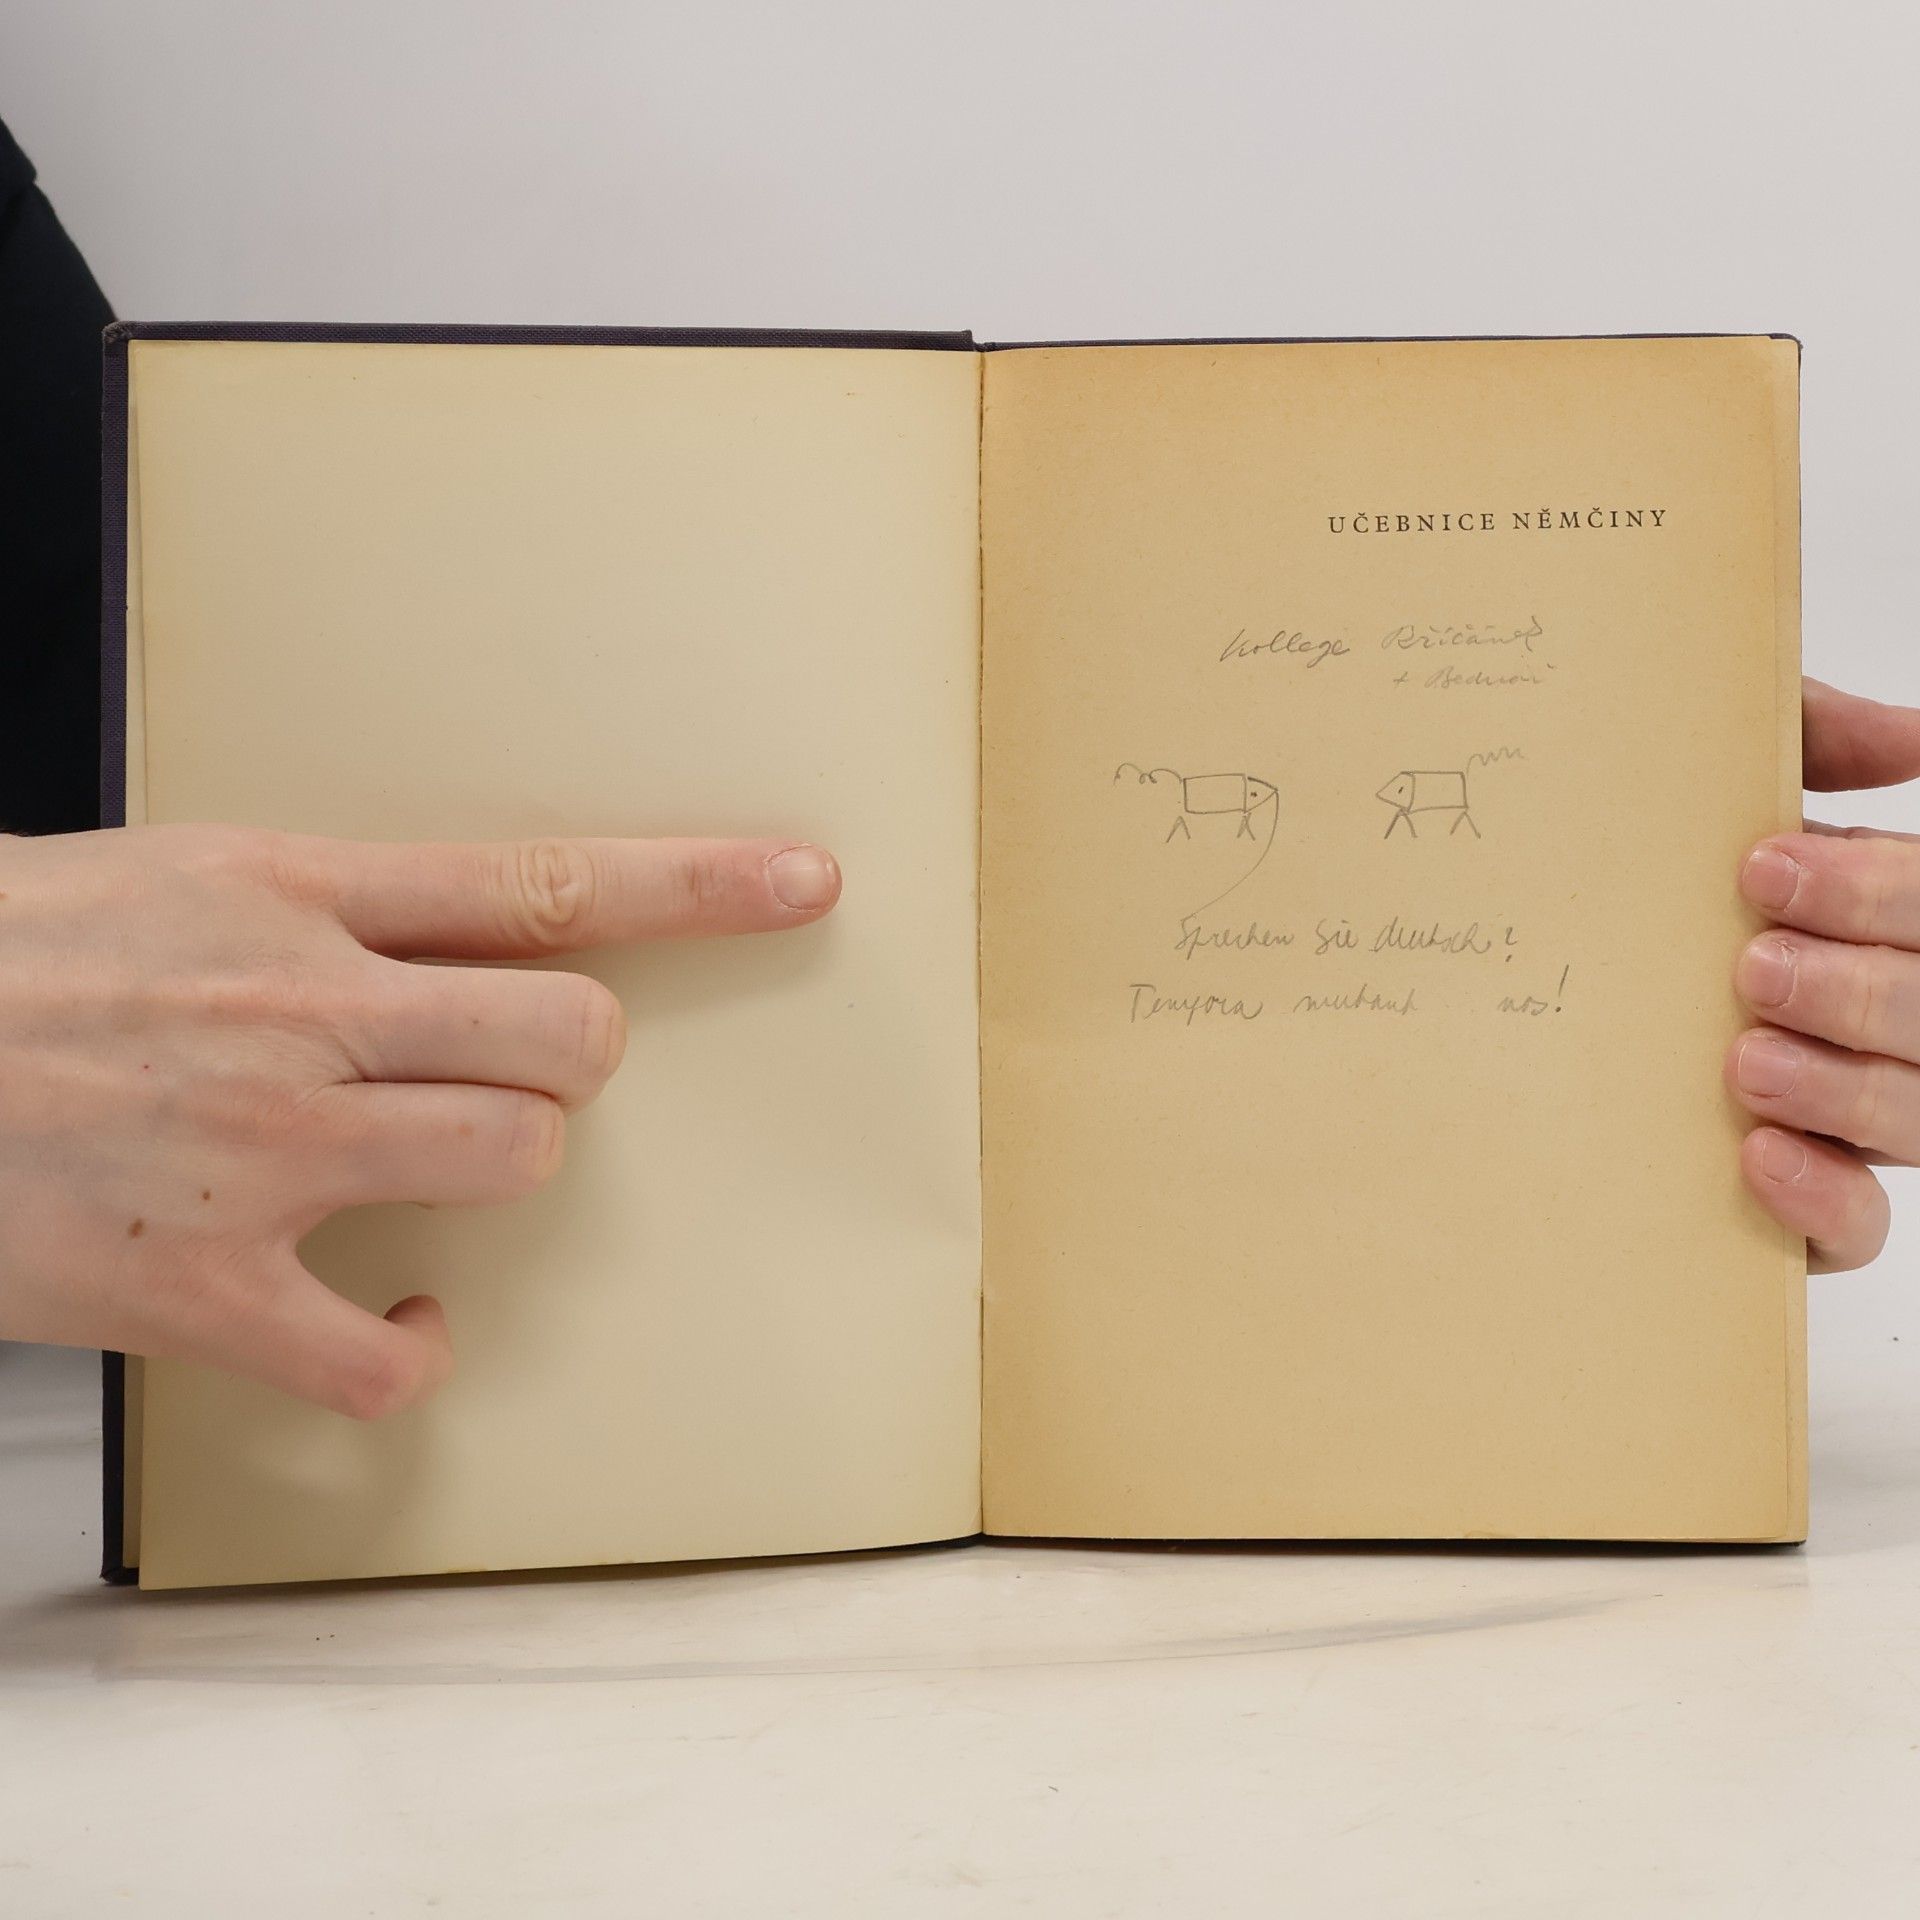 UČEBNICE NĚMČINY
Kollege Říčánek
+ Bednář
Sprechen Sie deutsch?
Tempora mutant nos!